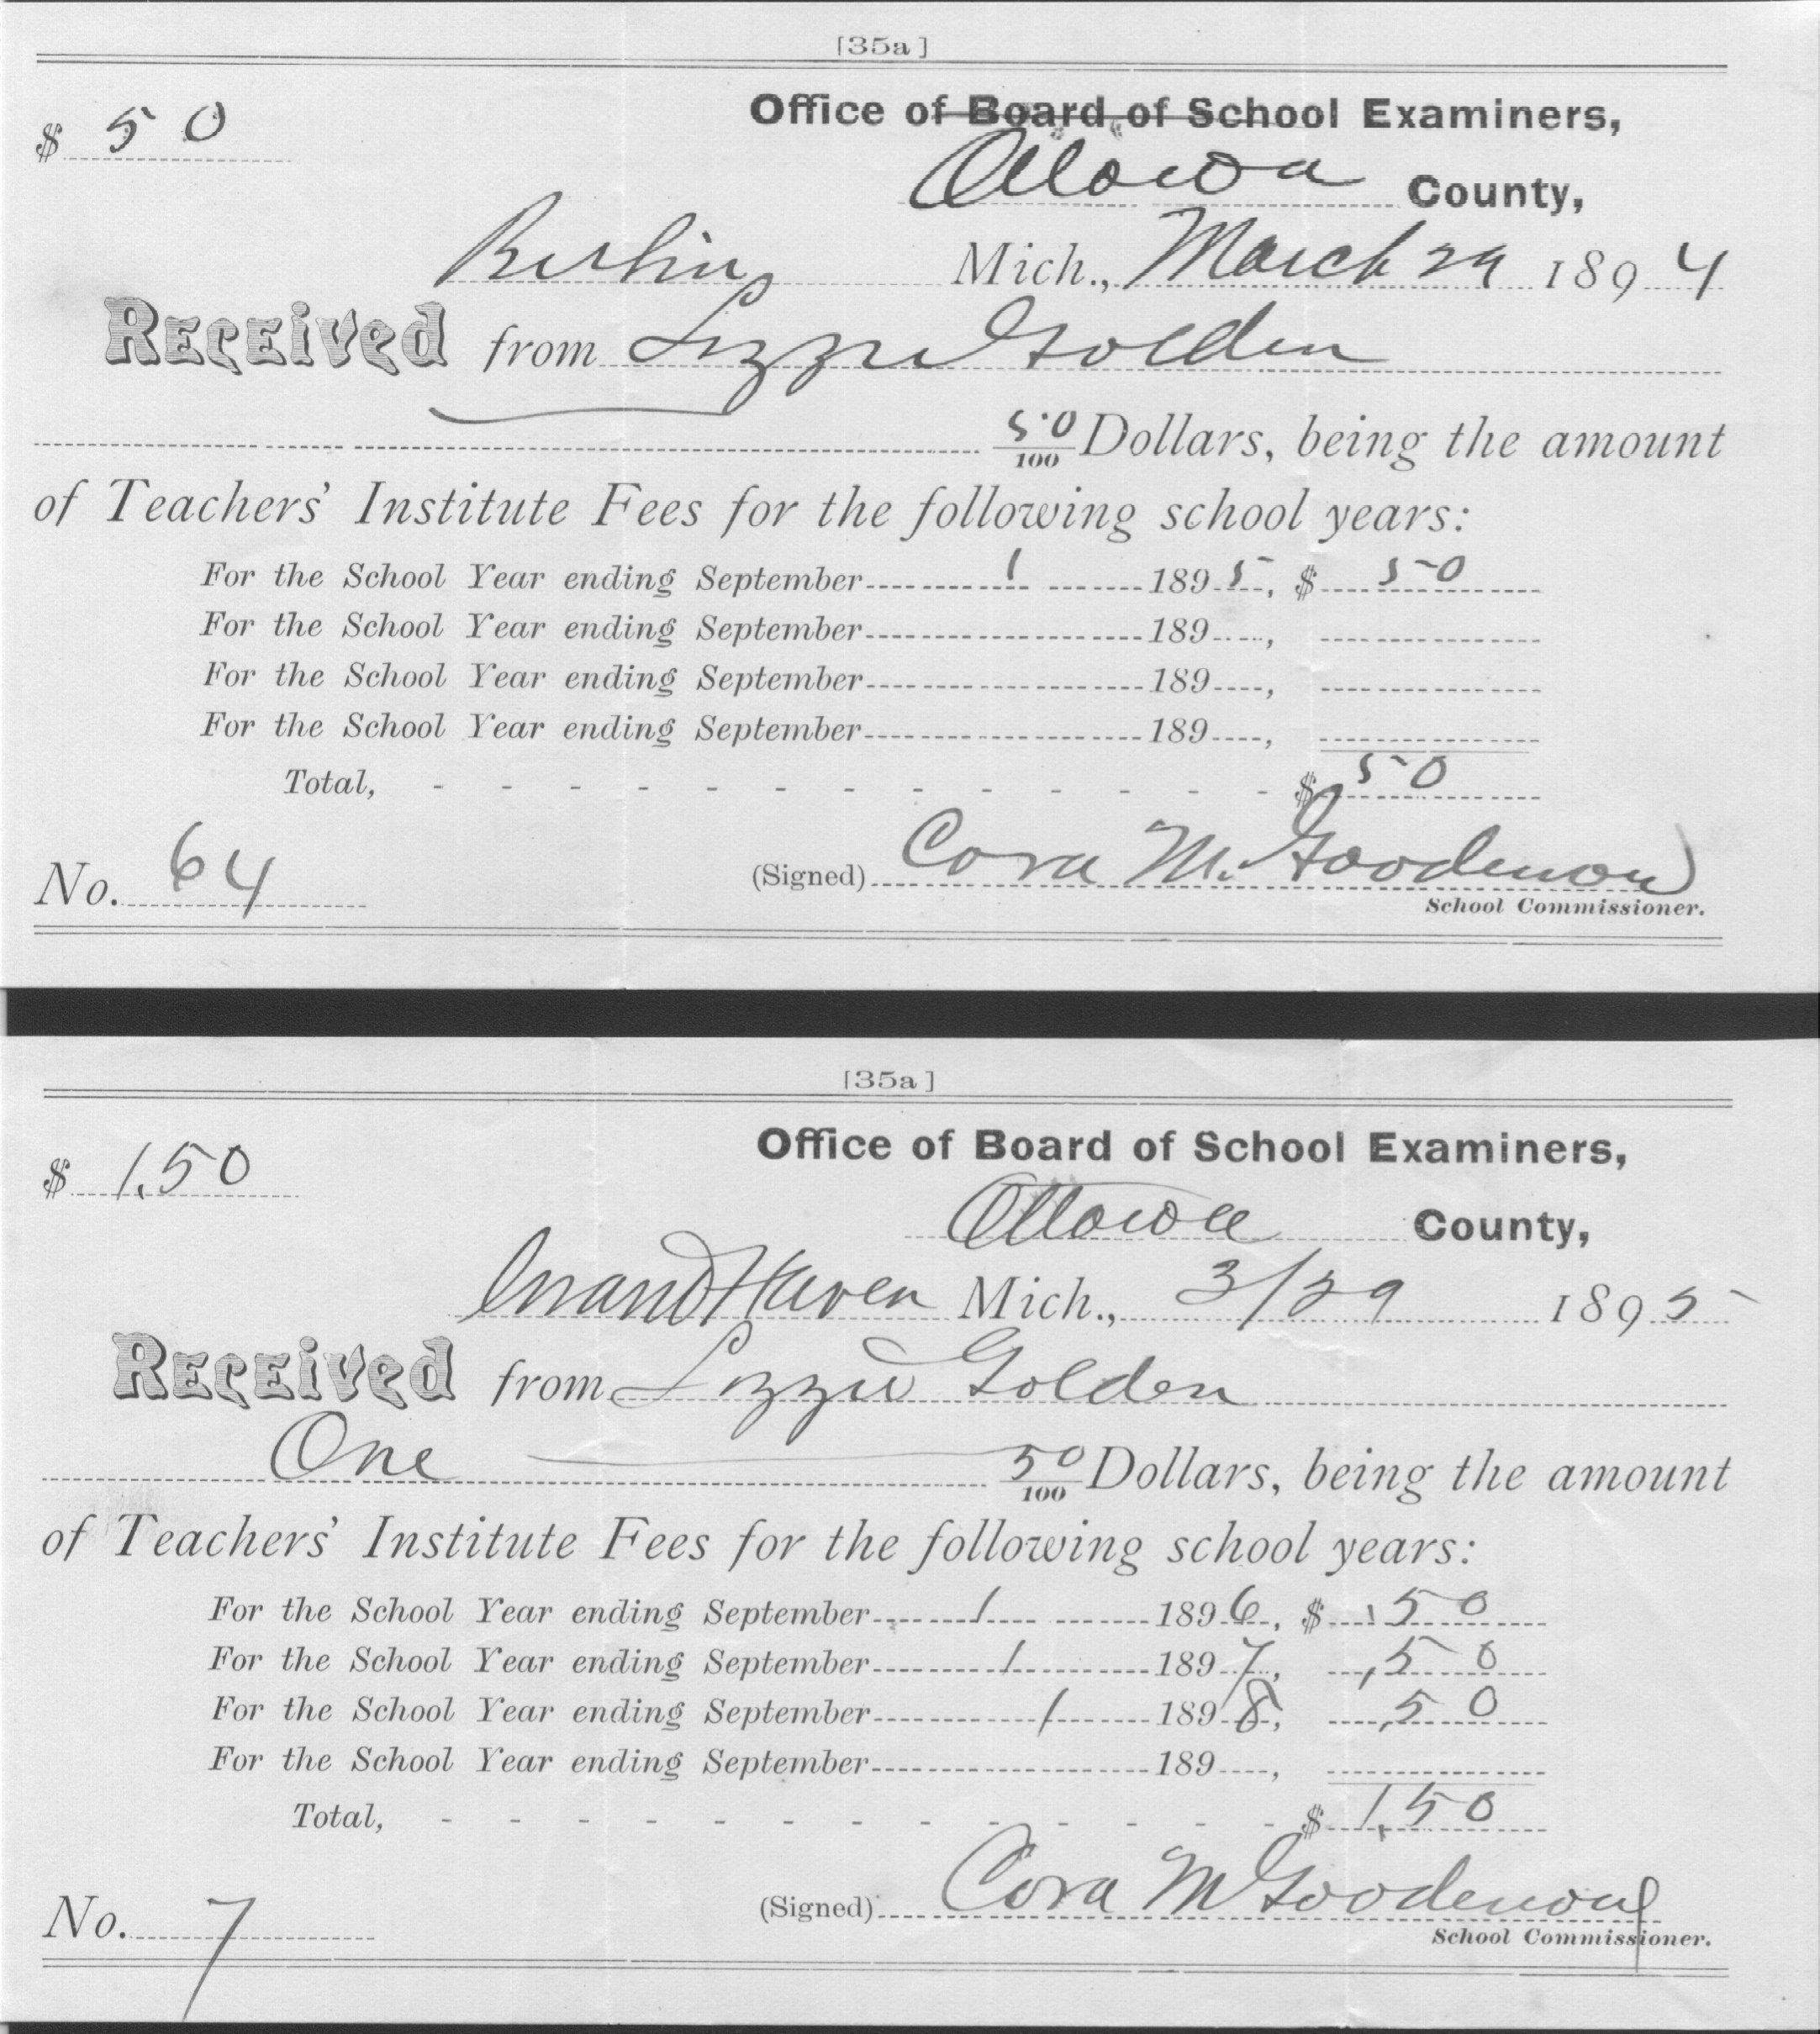 [35a]
$ 50
Office of Board of School Examiners,
Ottowa County,
Berlin, Mich., March 29 1894
Received from Lizzie Golden
50/100 Dollars, being the amount
of Teachers' Institute Fees for the following school years:
For the School Year ending September 1 1895, $ 50
For the School Year ending September 189 ,
For the School Year ending September 189 ,
For the School Year ending September 189 ,
Total, - - - - - - - - - - - - - $ 50
No. 64 (Signed) Cora M. Goodenow
School Commissioner.
[35a]
$ 1.50
Office of Board of School Examiners,
Ottowa County,
Grand Haven Mich., 3/29 1895
Received from Lizzie Golden
One 50/100 Dollars, being the amount
of Teachers' Institute Fees for the following school years:
For the School Year ending September 1 1896, $ .50
For the School Year ending September 1 1897, .50
For the School Year ending September 1 1898, .50
For the School Year ending September 189 ,
Total, - - - - - - - - - - - - - $ 1.50
No. 7 (Signed) Cora M Goodenow
School Commissioner.